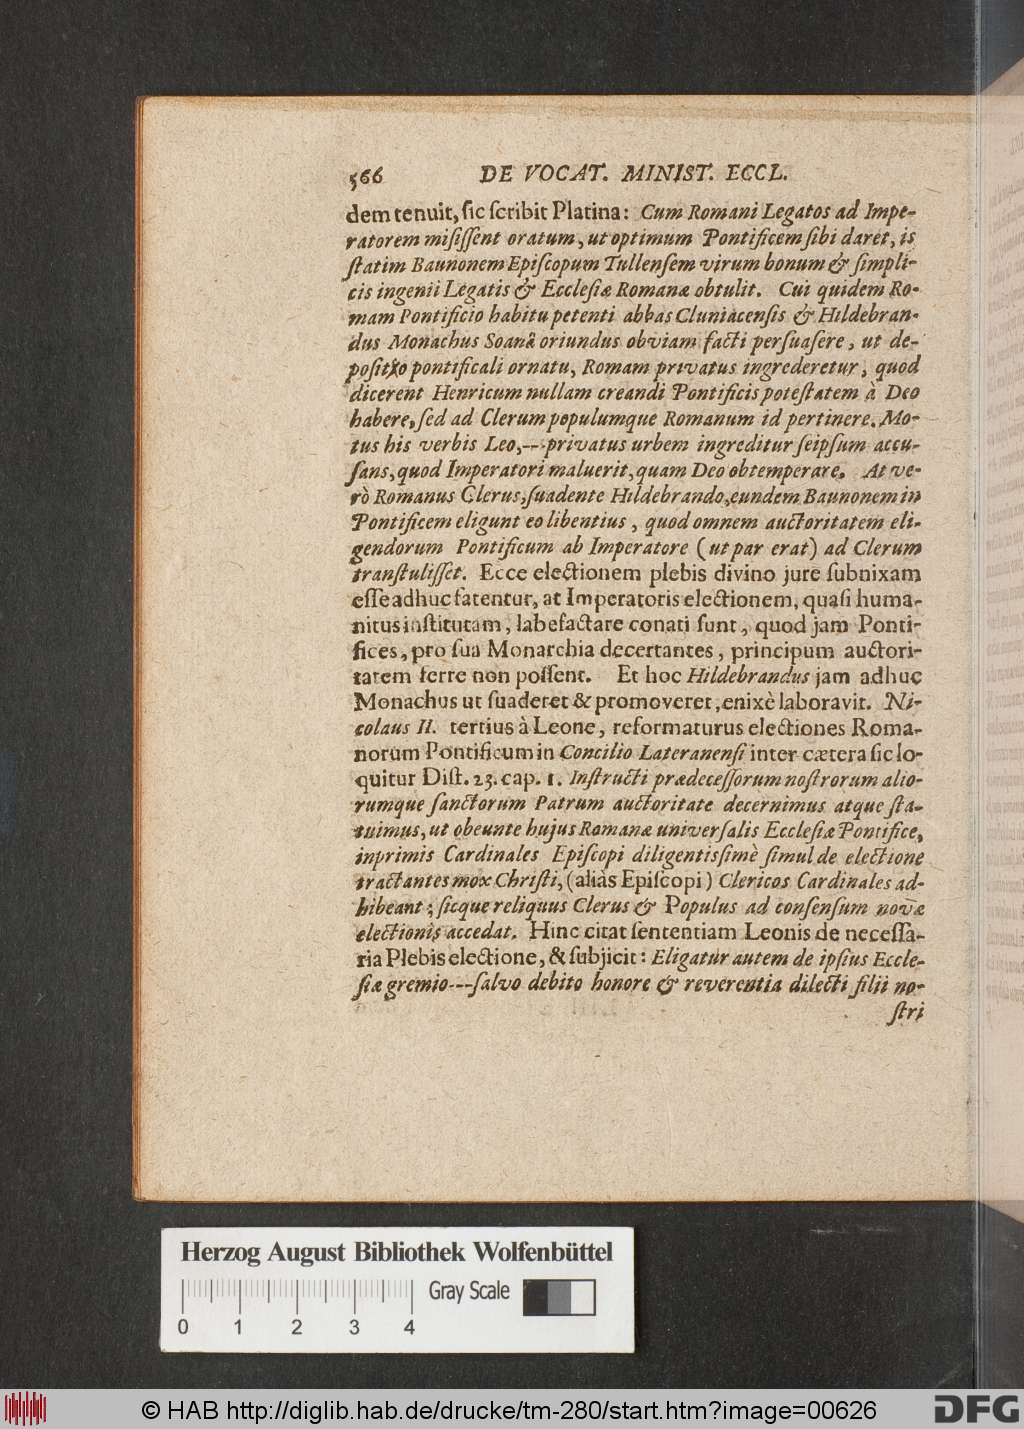 566 DE VOCAT. MINIST. ECCL.
dem tenuit, ſic ſcribit Platina: Cum Romani Legatos ad Impe-
ratorem miſiſſent oratum, ut optimum Pontificem ſibi daret, is
ſtatim Baunonem Epiſcopum Tullenſem virum bonum & ſimpli-
cis ingenii Legatis & Eccleſiæ Romanæ obtulit. Cui quidem Ro-
mam Pontificio habitu petenti abbas Cluniacenſis & Hildebran-
dus Monachus Soanâ oriundus obviam facti perſuaſere, ut de-
poſito pontificali ornatu, Romam privatus ingrederetur, quod
dicerent Henricum nullam creandi Pontificis poteſtatem à Deo
habere, ſed ad Clerum populumque Romanum id pertinere. Mo-
tus his verbis Leo,--- privatus urbem ingreditur ſeipſum accu-
ſans, quod Imperatori maluerit, quam Deo obtemperare. At ve-
rò Romanus Clerus, ſuadente Hildebrando, eundem Baunonem in
Pontificem eligunt eo libentius, quod omnem auctoritatem eli-
gendorum Pontificum ab Imperatore (ut par erat) ad Clerum
tranſtuliſſet. Ecce electionem plebis divino jure ſubnixam
eſſe adhuc fatentur, at Imperatoris electionem, quaſi huma-
nitus inſtitutam, labefactare conati ſunt, quod jam Ponti-
fices, pro ſua Monarchia decertantes, principum auctori-
tatem ferre non poſſent. Et hoc Hildebrandus jam adhuc
Monachus ut ſuaderet & promoveret, enixè laboravit. Ni-
colaus II. tertius à Leone, reformaturus electiones Roma-
norum Pontificum in Concilio Lateranenſi inter cætera ſic lo-
quitur Diſt. 23. cap. 1. Inſtructi prædeceſſorum noſtrorum alio-
rumque ſanctorum Patrum auctoritate decernimus atque ſta-
tuimus, ut obeunte hujus Romanæ univerſalis Eccleſiæ Pontifice,
inprimis Cardinales Epiſcopi diligentiſſimè ſimul de electione
tractantes mox Chriſti, (aliàs Epiſcopi) Clericos Cardinales ad-
hibeant; ſicque reliquus Clerus & Populus ad conſenſum novæ
electionis accedat. Hinc citat ſententiam Leonis de neceſſa-
ria Plebis electione, & ſubjicit: Eligatur autem de ipſius Eccle-
ſiæ gremio---ſalvo debito honore & reverentia dilecti filii no-
ſtri
Herzog August Bibliothek Wolfenbüttel
Gray Scale
0 1 2 3 4
© HAB http://diglib.hab.de/drucke/tm-280/start.htm?image=00626
DFG